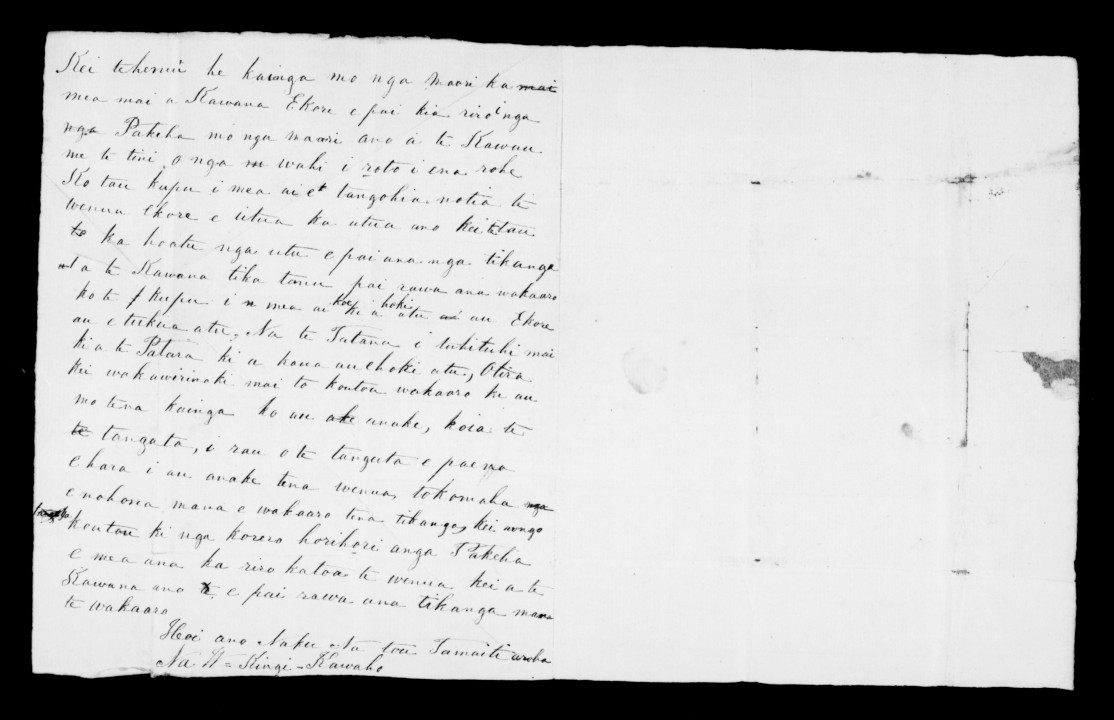 Kei te hemu he kainga mo nga Maori ka mai
mea mai a Kawana Ekore e pai kia riro i nga
nga Pakeha mo nga maori ano a te Kawau
me te tini o nga wahi i roto i ena rohe
Ko tau kupu i mea ai et tangohia notia te
wenua Ekore e utua ka utua ano kei te tau
te ka hoatu nga utu e pai ana nga tikanga
a te Kawana tika tonu pai rawa ana wakaaro
ko te kupu i mea ai koe ki a hoki atu au Ekore
au e tukua atu, Na te Tatana i tuhituhi mai
ki a te Patara ki a haua au e hoki atu, Otira
kei wakawirinaki mai to koutou wakaaro ki au
mo tena kainga ko au ake anake, koia te
te tangata, i rau o te tangata e pae na
Ehara i au anake tena wenua tokomaha nga
tangata e nohona mana e wakaaro tena tikanga, kei rongo
koutou ki nga korero horihori a nga Pakeha
e mea ana ka riro katoa te wenua kei a te
Kawana ano te e pai rawa ana tikanga mana
te wakaaro
Heoi ano Naku Na tou Tamaiti aroha
Na W = Kingi - Kawaho